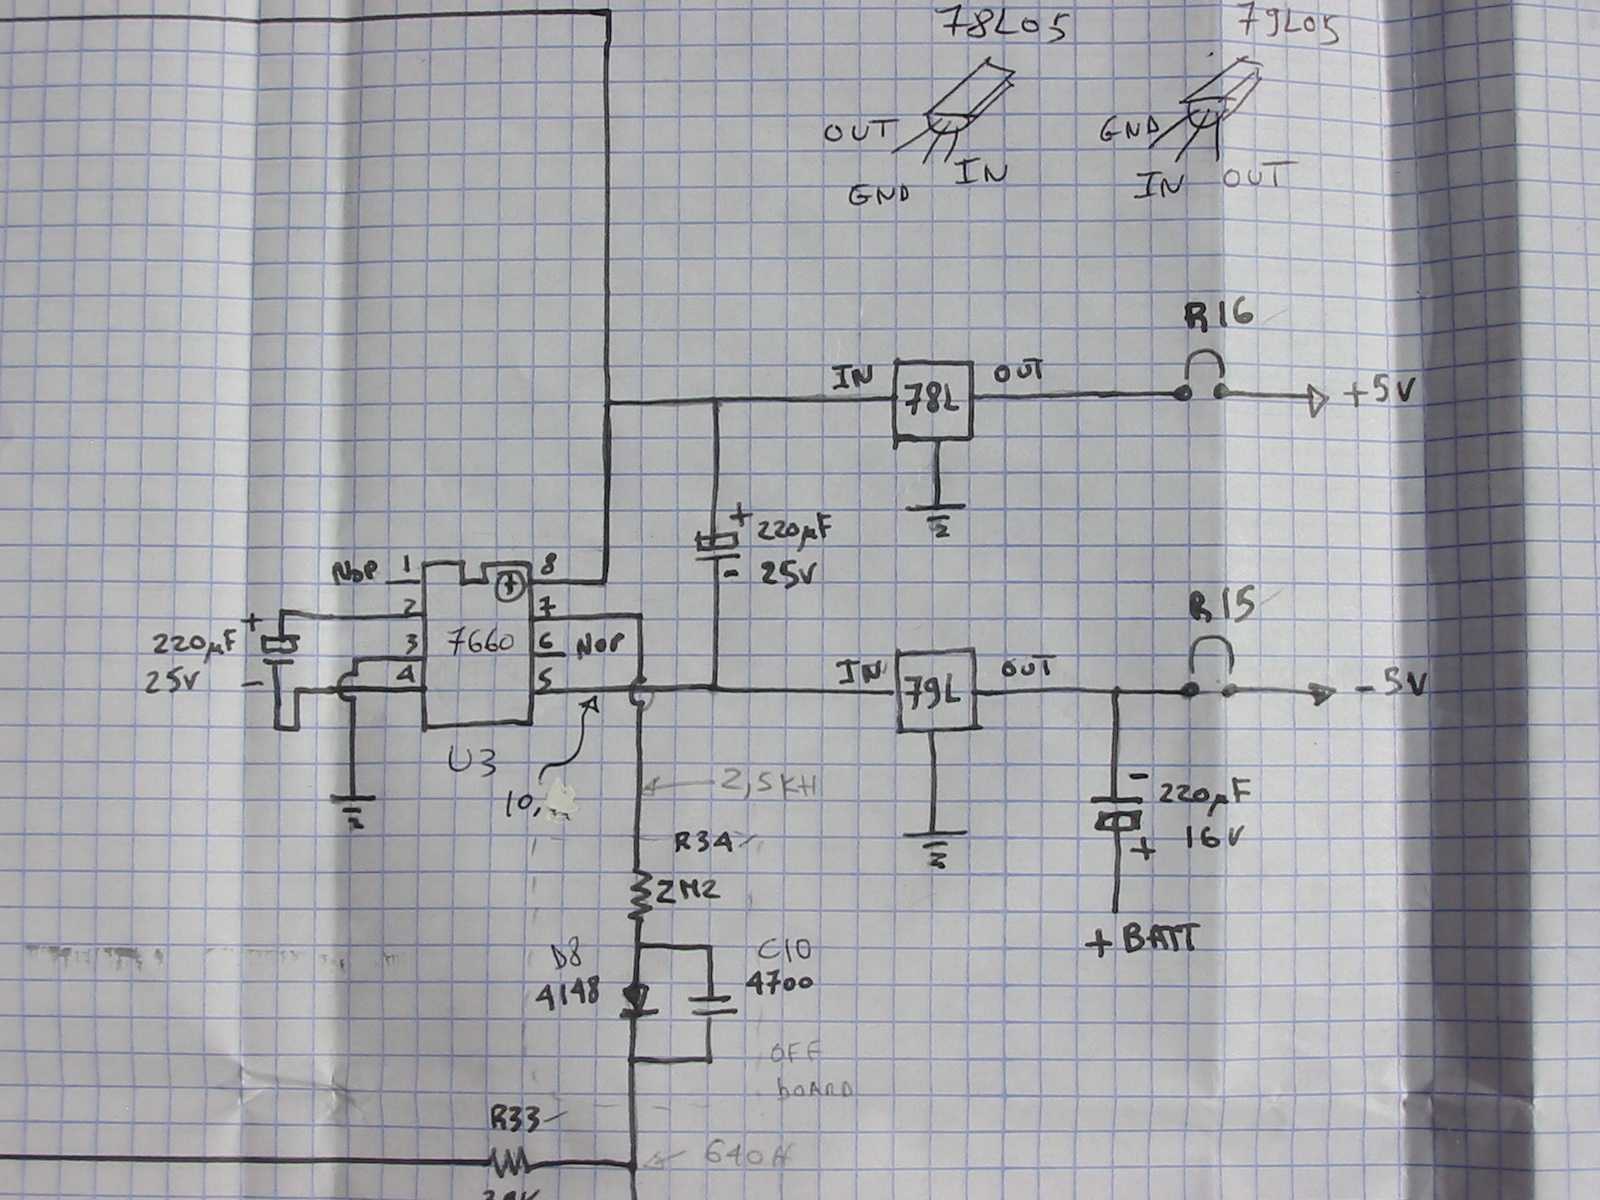 78L05
79L05
OUT
GND
IN
GND
IN
OUT
R16
IN
78L
OUT
+5V
+
220µF
- 25V
NOP
1
8
2
7
3
7660
6
NOP
4
5
+
220µF
25V
-
R15
IN
79L
OUT
-5V
U3
10,
2,5KH
-
220µF
16V
+
+BATT
R34
2M2
D8
4148
C10
4700
OFF
BOARD
R33